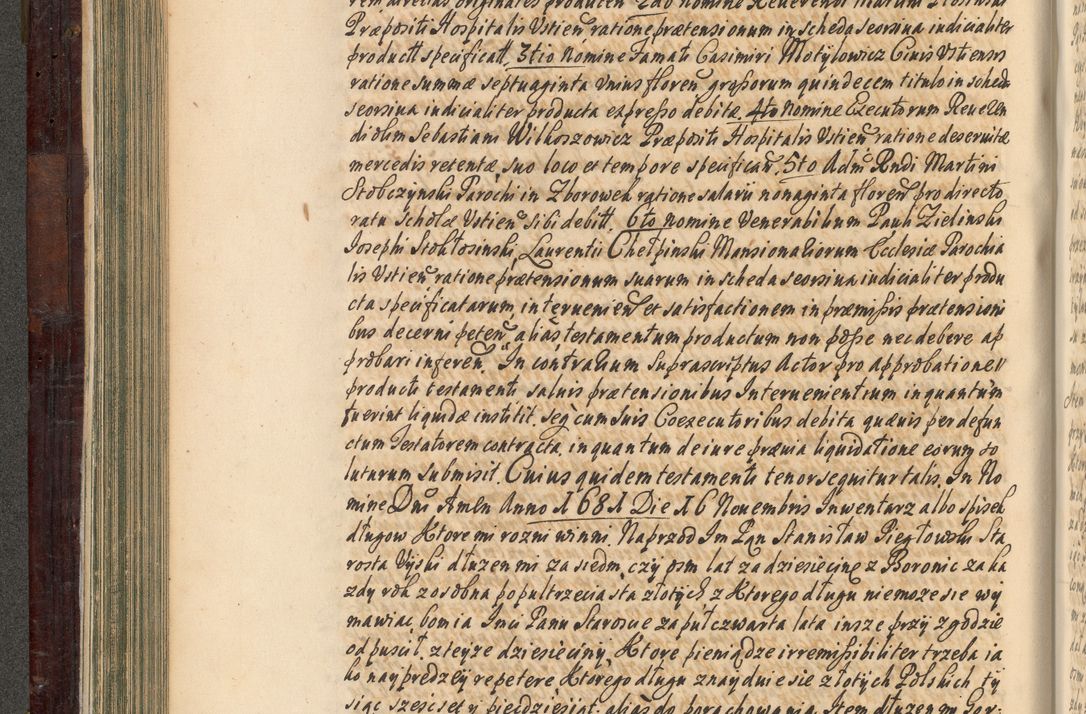 rem directas originales producen 2do nomine Reuerendi
Præpositi Hospitalis Vstien ratione prætensionum in scheda seorsiua iudicialiter
product specificat. 3tio Nomine Famati Casimiri Motylowicz Ciuis Vstiensis
ratione summæ septuaginta vnius floren grossorum quindecem titulo in scheda
seorsiua iudicialiter producta expresso debitæ. 4to Nomine Executorum Reueren
di olim Sebastiani Wilkoszowicz Præpositi Hospitalis Vstien ratione deseruitæ
mercedis retentæ, suo loco et tempore specifican. 5to Adm Rndi Martini
Stobczynski Parochi in Zborowek ratione salarii nonaginta floren pro directo
ratu Scholæ Vstien sibi debit. 6to nomine Venerabilium Pauli Zielinski
Josephi Stoktosinski, Laurentii Chełpinski Mansionaliorum Ecclesiæ Parochia
lis Vstien ratione prætensionum suarum in scheda seorsiua iudicialiter produ
cta specificatarum, interuenien et satisfactionem in præmissis prætensioni
bus decerni peten alias testamentum productum non posse nec debere ap
probari inferen. In contrarium Suprascriptus Actor pro approbatione
producti testamenti saluis prætensionibus Interuenientium in quantum
fuerint liquidæ institit. Seq cum suis Coexecutoribus debita quæuis per defun
ctum Testatorem contracta, in quantum de iure præuia liquidatione eorum so
luturum submisit. Cuius quidem testamenti tenor sequitur talis. In No
mine Dni Amen Anno 1681 Die 16 Nouembris Inwentarz albo spisek
długow ktore mi rozni winni. Naprzod Im Pan Stanisław Piegłowski Sta
rosta Vyski dłuzen mi za siedm, czy osm lat za dziesiecine z Boronic za ka
zdy rok zosobna po pułtrzecia sta złotych z ktorego długu niemoze sie wy
mawiac, bom ia Imci Panu Staroscie za pułczwarta lata insze przy zgodzie
odpuscił z teyze dziesieciny, Ktore pieniądze irremissibiliter trzeba ia
ko nayprędzey repetere ktorego długu znayduie sie złotych Polskich ty
siąc szescset y piecdziesiąt. alias do porachowania. Item dłuzen m